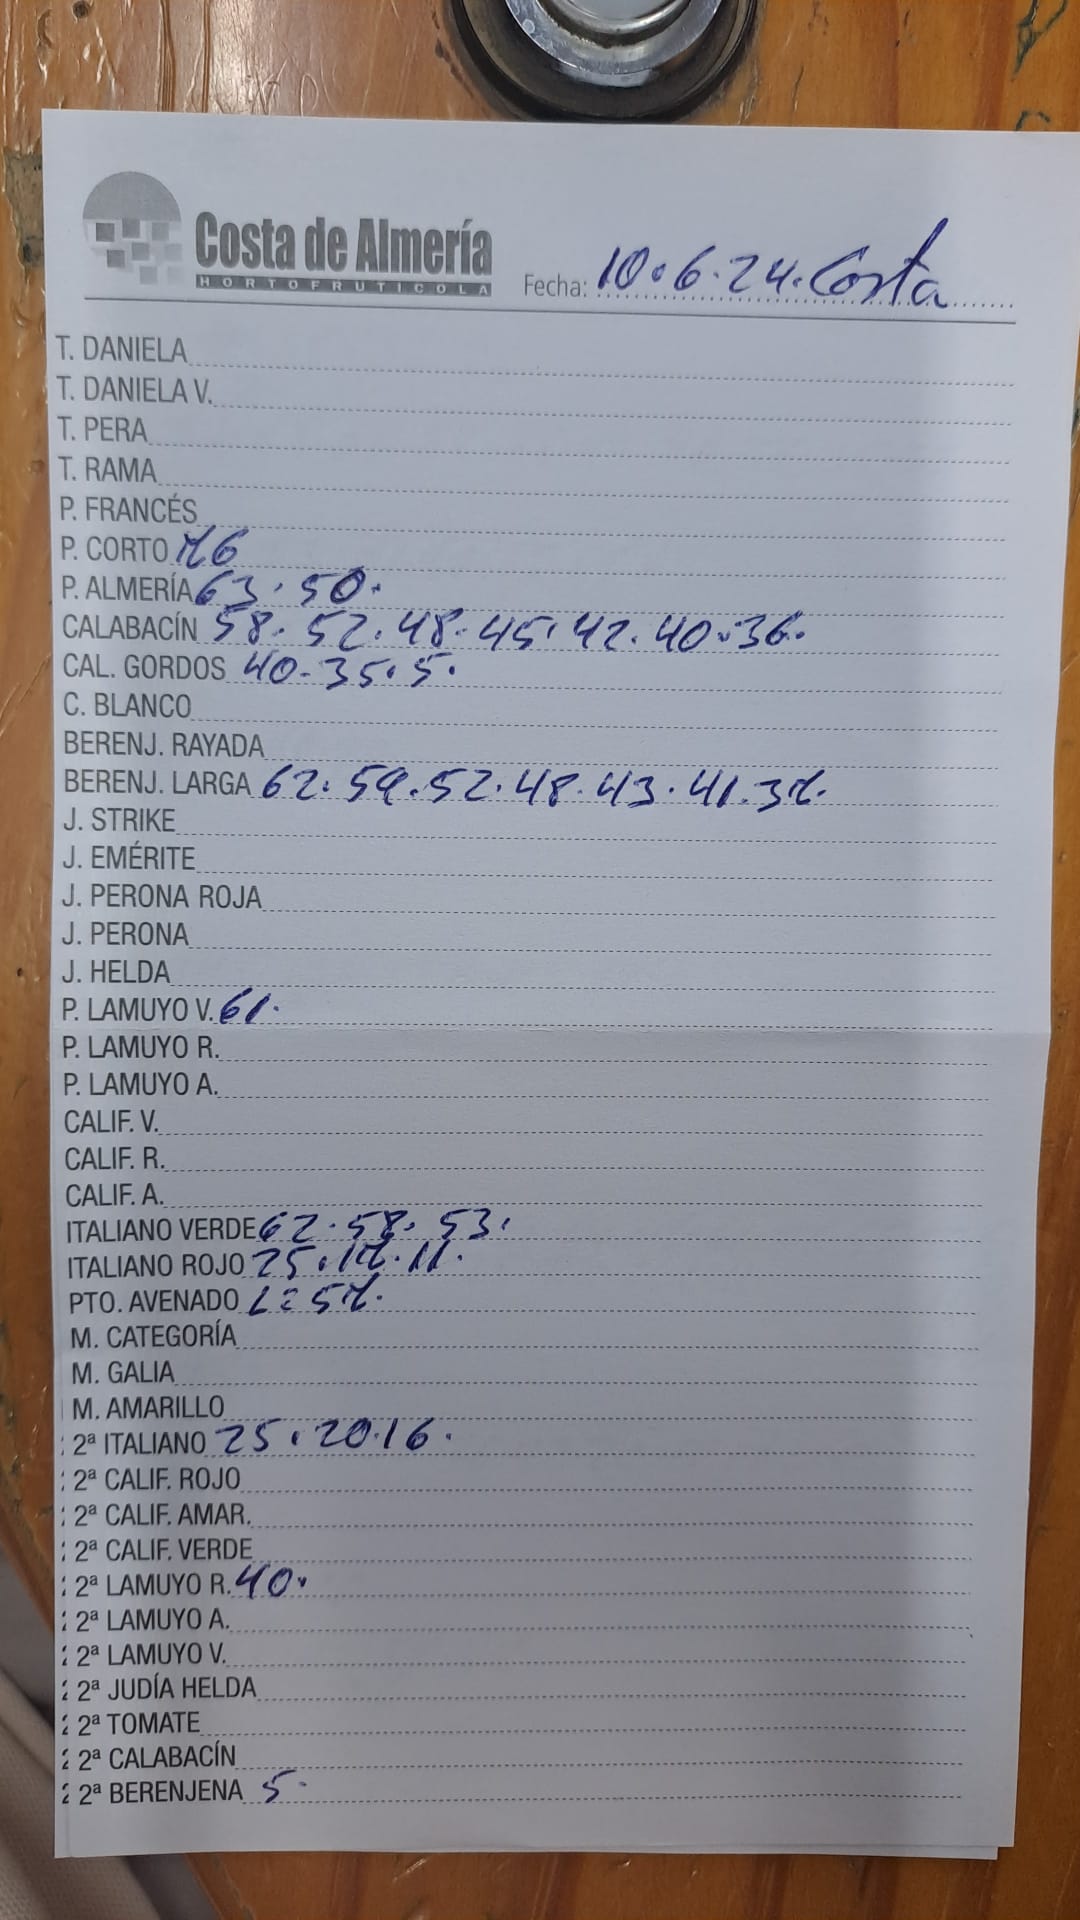 Costa de Almería
HORTOFRUTICOLA
Fecha: 10.6.24. Costa
T. DANIELA
T. DANIELA V.
T. PERA
T. RAMA
P. FRANCÉS
P. CORTO 76
P. ALMERÍA 63. 50.
CALABACÍN 58. 52. 48. 45. 42. 40. 36.
CAL. GORDOS 40. 35. 5.
C. BLANCO
BERENJ. RAYADA
BERENJ. LARGA 62. 59. 52. 48. 43. 41. 37.
J. STRIKE
J. EMÉRITE
J. PERONA ROJA
J. PERONA
J. HELDA
P. LAMUYO V. 61.
P. LAMUYO R.
P. LAMUYO A.
CALIF. V.
CALIF. R.
CALIF. A.
ITALIANO VERDE 62. 58. 53.
ITALIANO ROJO 25. 17. 11.
PTO. AVENADO L=57.
M. CATEGORÍA
M. GALIA
M. AMARILLO
2ª ITALIANO 25. 20. 16.
2ª CALIF. ROJO
2ª CALIF. AMAR.
2ª CALIF. VERDE
2ª LAMUYO R. 40.
2ª LAMUYO A.
2ª LAMUYO V.
2ª JUDÍA HELDA
2ª TOMATE
2ª CALABACÍN
2ª BERENJENA 5.